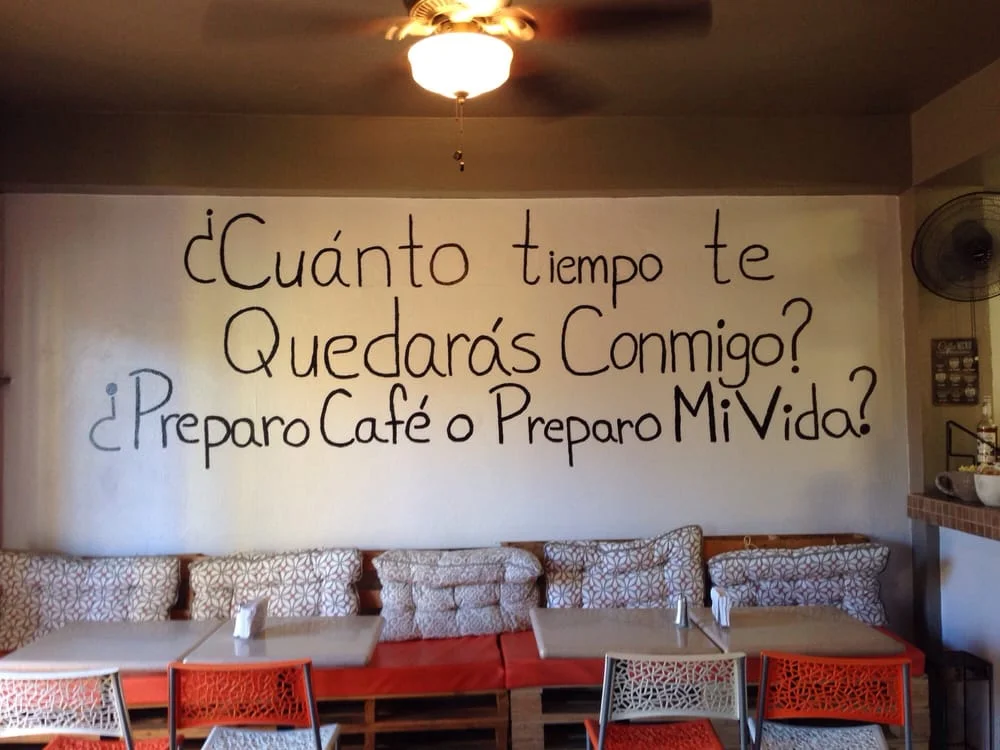 ¿Cuánto tiempo te
Quedarás Conmigo?
¿Preparo Café o Preparo Mi Vida?